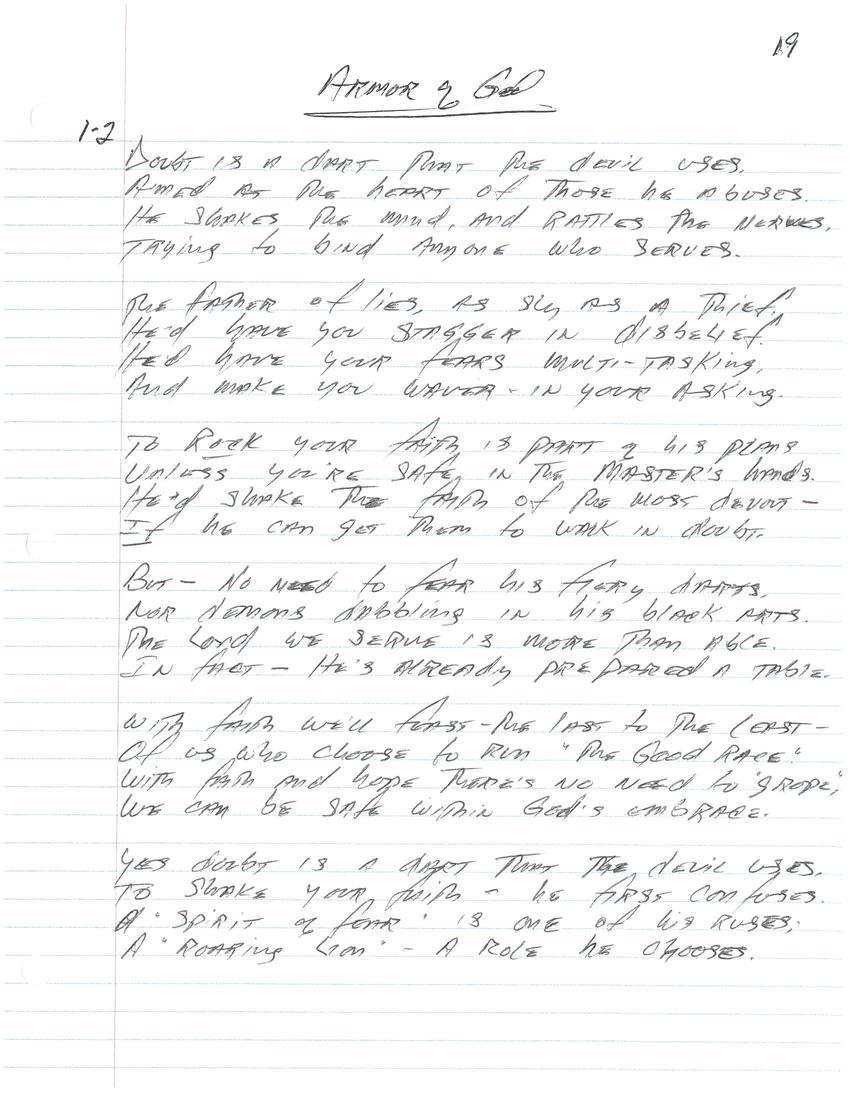 19
Armor of God
1-2
Doubt is a dart that the devil uses,
Aimed at the heart of those he abuses.
He shakes the mind, and rattles the nerves,
Trying to bind anyone who serves.
The father of lies, as sly as a thief,
He'd have you stagger in disbelief.
He'd have your fears multi-tasking,
And make you waver - in your asking.
To Rock your faith is part of his plans
Unless you're safe, in the Master's hands.
He'd shake the faith of the most devout -
If he can get them to walk in doubt.
But - No need to fear his fiery darts,
Nor demons dabbling in his black arts.
The Lord we serve is more than able.
In fact - He's already prepared a table.
With faith we'll feast - the last to the least -
Of us who choose to run "The Good Race".
With faith and hope there's no need to "grope",
We can be safe within God's embrace.
Yes doubt is a dart that the devil uses.
To shake your faith - he first confuses.
A "spirit of fear" is one of his ruses;
A "Roaring Lion" - a role he chooses.